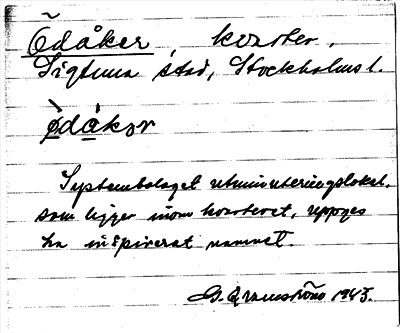 Ödåker, kvarter,
Sigtuna stad, Stockholms l.
ødåkər
Systembolaget utminuteringslokal,
som ligger inom kvarteret, uppges
ha inspirerat namnet.
G. Granström 1943.